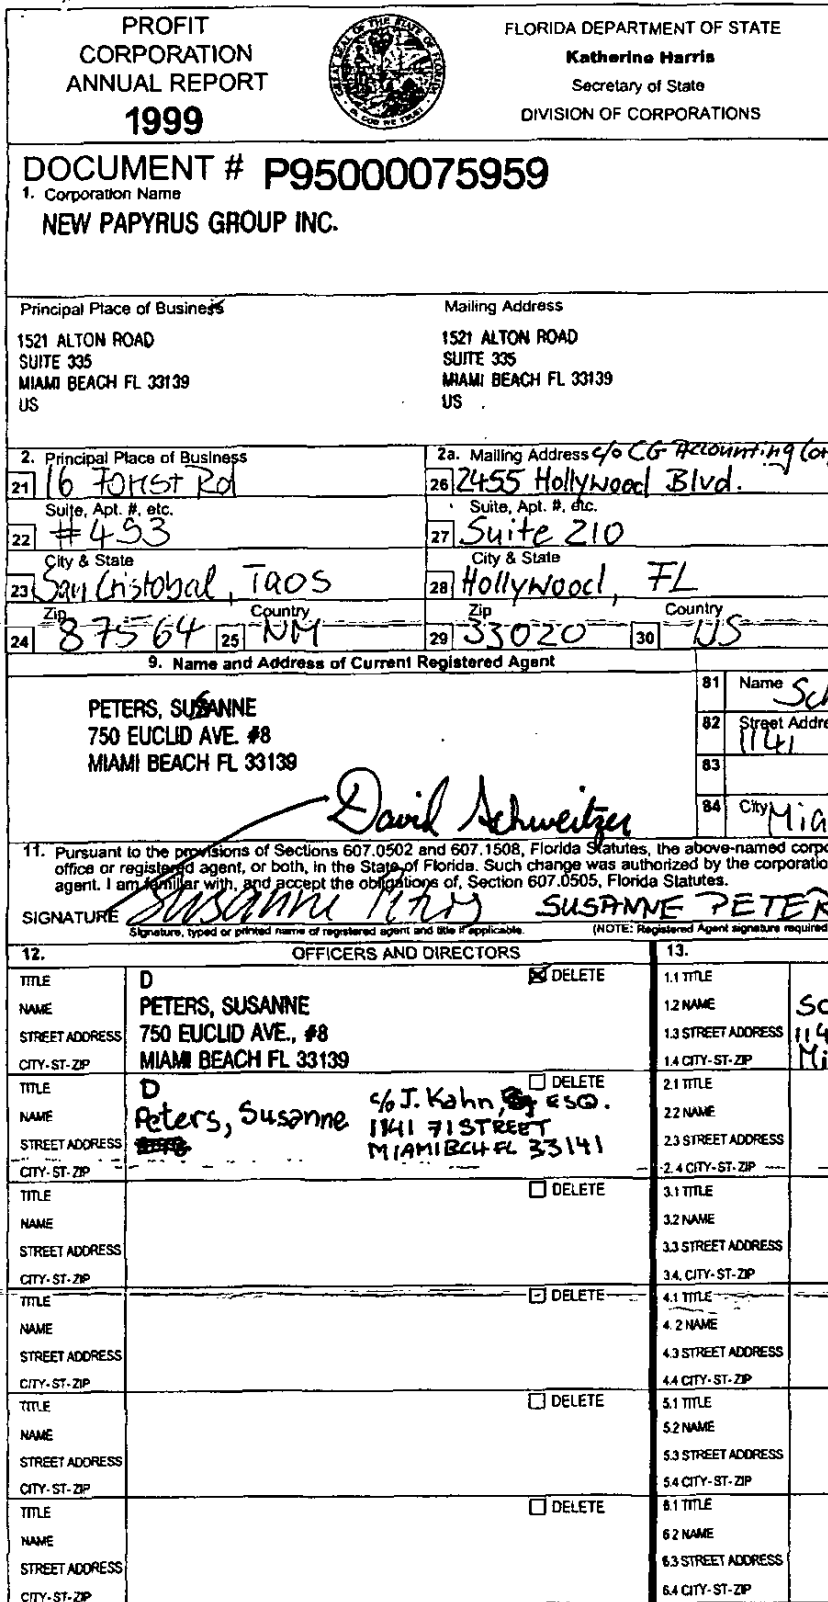 PROFIT
CORPORATION
ANNUAL REPORT
1999
FLORIDA DEPARTMENT OF STATE
Katherine Harris
Secretary of State
DIVISION OF CORPORATIONS
DOCUMENT # P95000075959
1. Corporation Name
NEW PAPYRUS GROUP INC.
Principal Place of Business
1521 ALTON ROAD
SUITE 335
MIAMI BEACH FL 33139
US
Mailing Address
1521 ALTON ROAD
SUITE 335
MIAMI BEACH FL 33139
US
2. Principal Place of Business
21 16 Forest Rd
Suite, Apt. #, etc.
22 #493
City & State
23 San Cristobal, TAOS
Zip Country
24 87564 25 NM
2a. Mailing Address c/o CG Accounting
26 2455 Hollywood Blvd.
Suite, Apt. #, etc.
27 Suite 210
City & State
28 Hollywood, FL
Zip Country
29 33020 30 US
9. Name and Address of Current Registered Agent
PETERS, SUSANNE
750 EUCLID AVE. #8
MIAMI BEACH FL 33139
David Schweitzer
81 Name
82 Street Addre
1141
83
84 City Mia
11. Pursuant to the provisions of Sections 607.0502 and 607.1508, Florida Statutes, the above-named corpo
office or registered agent, or both, in the State of Florida. Such change was authorized by the corporatio
agent. I am familiar with, and accept the obligations of, Section 607.0505, Florida Statutes.
SIGNATURE Susanne Peters SUSANNE PETER
Signature, typed or printed name of registered agent and title if applicable. (NOTE: Registered Agent signature required
12. OFFICERS AND DIRECTORS 13.
TITLE D DELETE
NAME PETERS, SUSANNE
STREET ADDRESS 750 EUCLID AVE., #8
CITY-ST-ZIP MIAMI BEACH FL 33139
1.1 TITLE
1.2 NAME Sc
1.3 STREET ADDRESS 114
1.4 CITY-ST-ZIP Mi
TITLE D DELETE
NAME Peters, Susanne c/o J. Kahn, ESQ.
STREET ADDRESS 1141 71 STREET
CITY-ST-ZIP MIAMI BCH FL 33141
2.1 TITLE
2.2 NAME
2.3 STREET ADDRESS
2.4 CITY-ST-ZIP
TITLE DELETE
NAME
STREET ADDRESS
CITY-ST-ZIP
3.1 TITLE
3.2 NAME
3.3 STREET ADDRESS
3.4. CITY-ST-ZIP
TITLE DELETE
NAME
STREET ADDRESS
CITY-ST-ZIP
4.1 TITLE
4.2 NAME
4.3 STREET ADDRESS
4.4 CITY-ST-ZIP
TITLE DELETE
NAME
STREET ADDRESS
CITY-ST-ZIP
5.1 TITLE
5.2 NAME
5.3 STREET ADDRESS
5.4 CITY-ST-ZIP
TITLE DELETE
NAME
STREET ADDRESS
CITY-ST-ZIP
6.1 TITLE
6.2 NAME
6.3 STREET ADDRESS
6.4 CITY-ST-ZIP